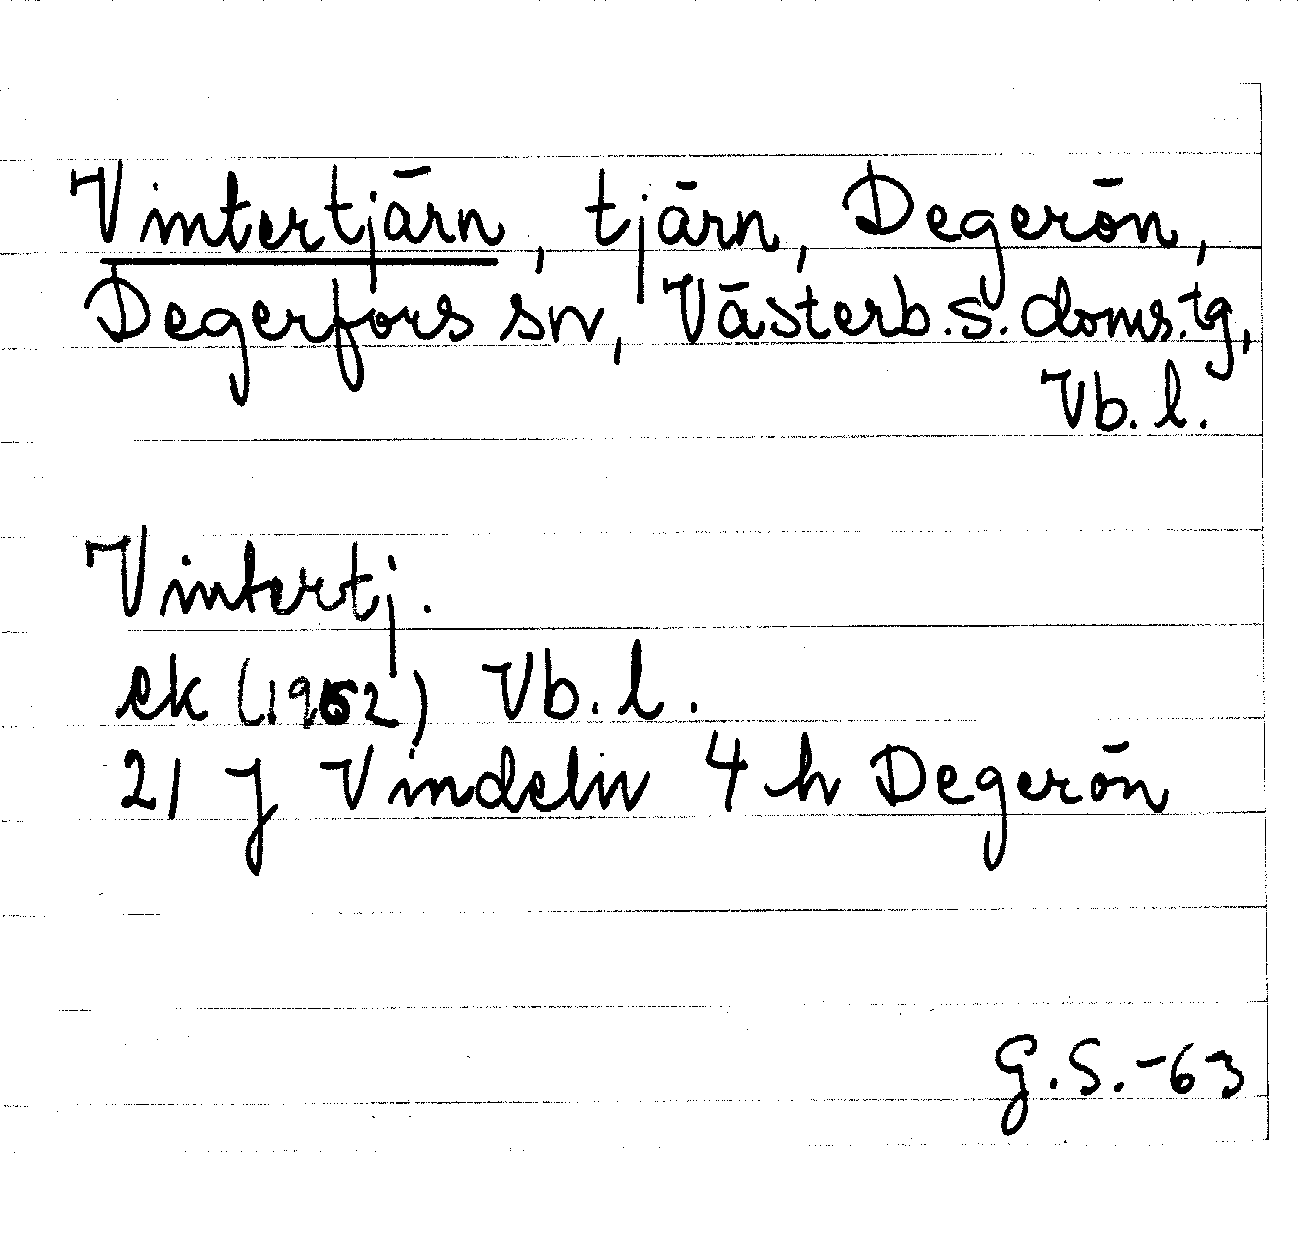 Vintertjärn, tjärn, Degerön,
Degerfors sn, Västerb. s. doms. tg,
Vb. l.
Vintertj.
ek (1962) Vb. l.
21 J Vindeln 4 h Degerön
G.S.-63